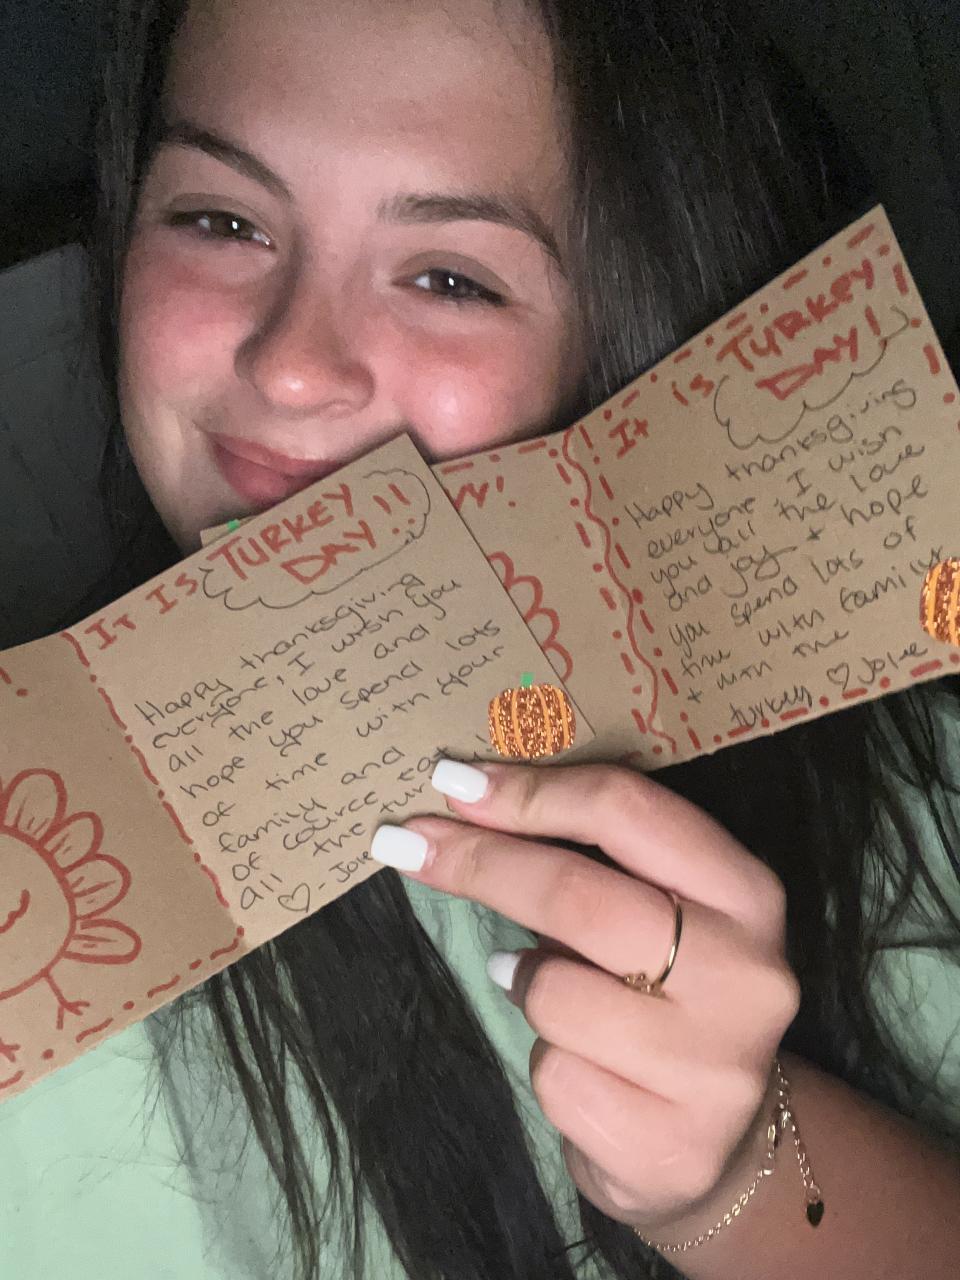 IT IS TURKEY
DAY!!
Happy thanksgiving
everyone, I wish you
all the love and
hope you spend lots
of time with your
family and
of cource eat
all the tur
♡-Jolie
!
IT IS TURKEY
DAY!
Happy thanksgiving
everyone I wish
you all the love
and joy + hope
you spend lots of
time with family
+ with the
turkey ♡ Jolie